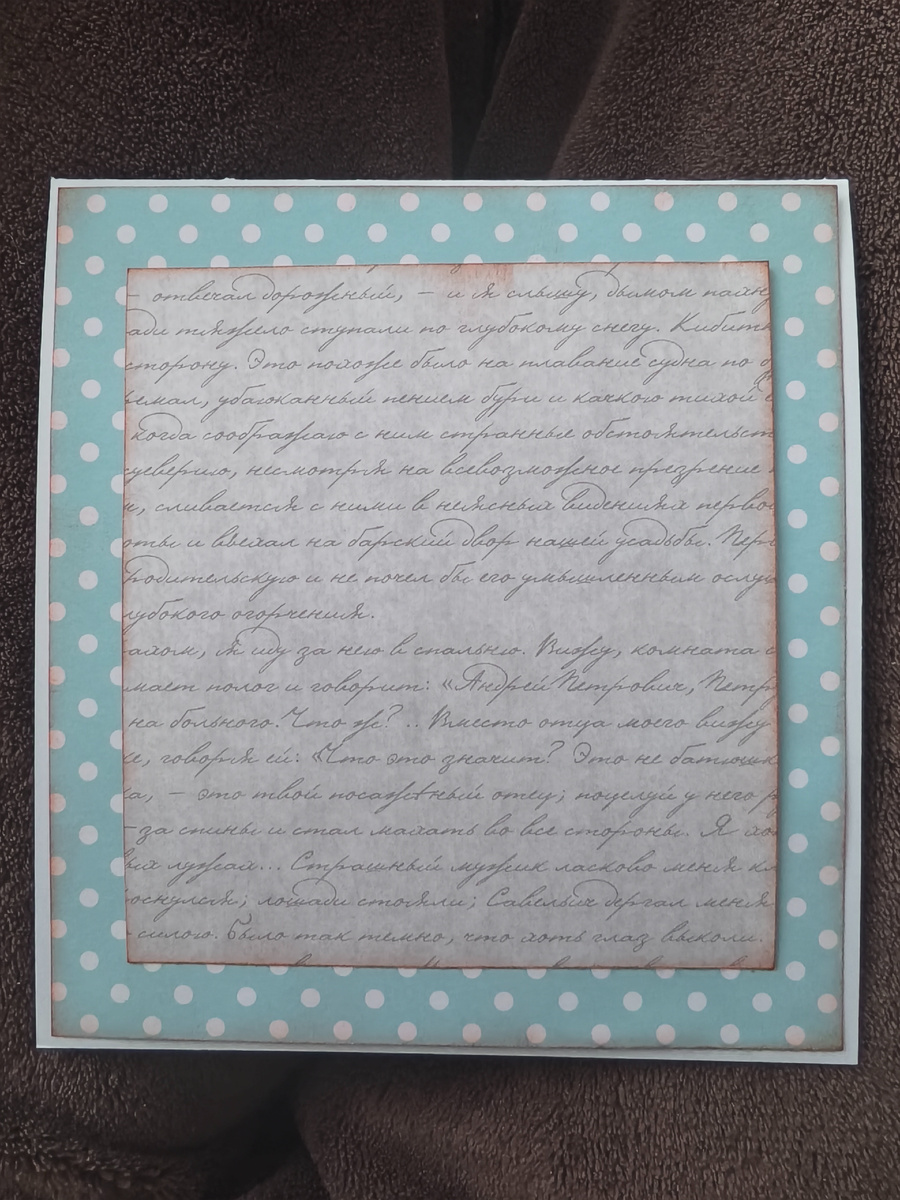 – отвечал дорожный, – и я слышу, дымом пахн
ади тяжело ступали по глубокому снегу. Кибитк
сторону. Это похоже было на плавание судна по
емал, убаюканный пением бури и качкою тихой е
когда соображаю с ним странные обстоятельст
уеверию, несмотря на всевозможное презрение
и, сливается с ними в неясных видениях перво
оты и въехал на барский двор нашей усадьбы. Перв
родительскую и не почел бы его умышленным ослуш
лубокого огорчения.
ахом, я иду за нею в спальню. Вижу, комната с
мает полог и говорит: «Андрей Петрович, Петр
на больного. Что ж? .. Вместо отца моего вижу
е, говоря ей: «Что это значит? Это не батюшк
а, – это твой посажёный отец; поцелуй у него р
-за спины и стал махать во все стороны. Я хо
ых лужах... Страшный мужик ласково меня кл
оснулся; лошади стояли; Савельич дергал меня
силою. Было так темно, что хоть глаз выколи.